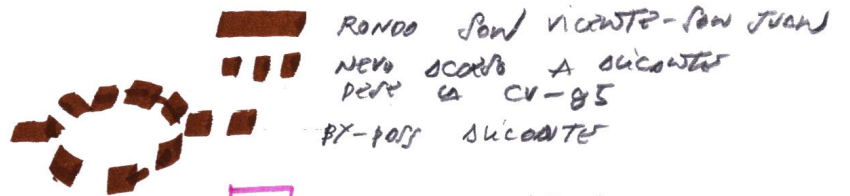 RONDO SAN VICENTE-SAN JUAN
NEVO ACCESO A ALICANTE
DESE LA CV-95
BY-PASS ALICANTE